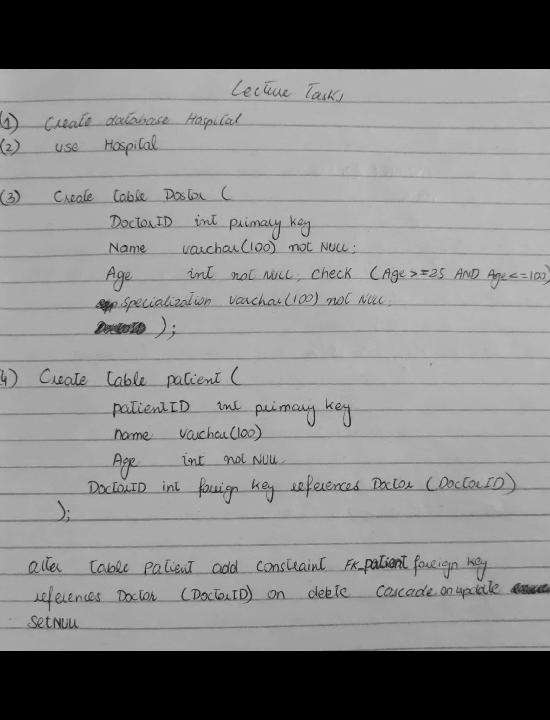 Lecture Tasks
(1) Create database Hospital
(2) use Hospital
(3) Create table Doctor (
DoctorID int primary key
Name varchar(100) not NULL;
Age int not NULL, check (Age >=25 AND Age <=100)
specialization varchar(100) not NULL,
);
4) Create table patient (
patientID int primary key
name varchar(100)
Age int not NULL.
DoctorID int foriegn key references Doctor (DoctorID)
);
alter table Patient add constraint FK_patient foreign key
references Doctor (DoctorID) on delete cascade on update
set NULL